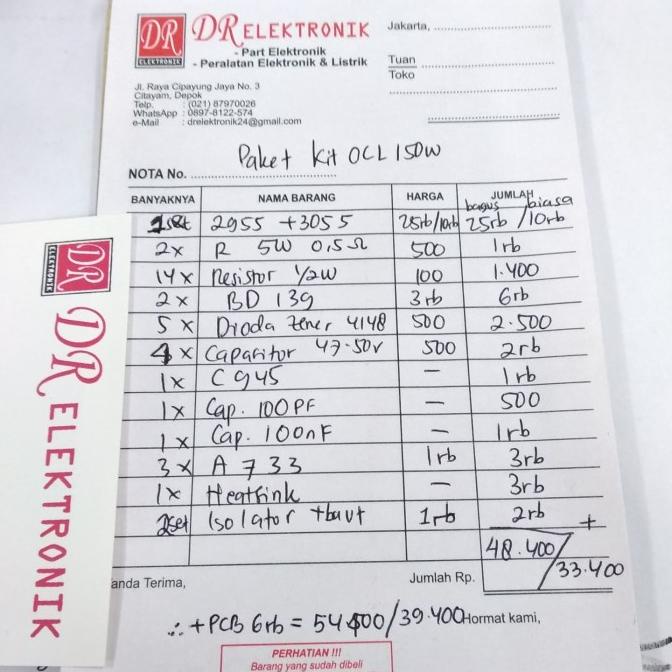 DR ELEKTRONIK
DR ELEKTRONIK
- Part Elektronik
- Peralatan Elektronik & Listrik
Jl. Raya Cipayung Jaya No. 3
Citayam, Depok
Telp. : (021) 87970026
WhatsApp : 0897-8122-574
e-Mail : drelektronik24@gmail.com
Jakarta,
Tuan
Toko
Paket Kit OCL 150W
NOTA No.
BANYAKNYA NAMA BARANG HARGA JUMLAH
bagus biasa
1set 2955 + 3055 25rb/10rb 25rb/10rb
2x R 5W 0,5Ω 500 1rb
14x Resistor 1/2W 100 1.400
2x BD 139 3rb 6rb
5x Dioda Zener 4148 500 2.500
4x Capacitor 47-50v 500 2rb
1x C945 — 1rb
1x Cap. 100PF — 500
1x Cap. 100nF — 1rb
3x A733 1rb 3rb
1x Heatsink — 3rb
2set Isolator + baut 1rb 2rb +
48.400/33.400
anda Terima, Jumlah Rp.
∴ + PCB 6rb = 54400/39.400
Hormat kami,
PERHATIAN !!!
Barang yang sudah dibeli
DR ELEKTRONIK
DR ELEKTRONIK